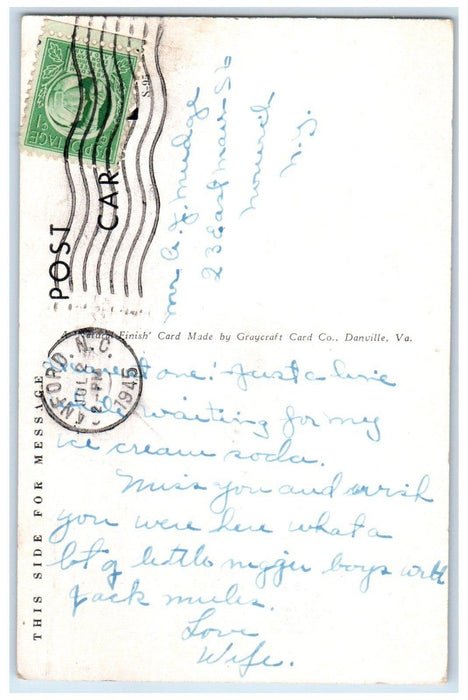 POST CARD
S-95
Mr A. J. Mudge
23 East Main St
Norwich
N.Y.
Finish' Card Made by Graycraft Card Co., Danville, Va.
THIS SIDE FOR MESSAGE
ANFORD. N.C.
JUL 2
2-PM
1945
one! Just a line
while waiting for my
ice cream soda.
Miss you and wish
you were here what a
lot of little nigger boys with
Jack mules.
Love
Wife.